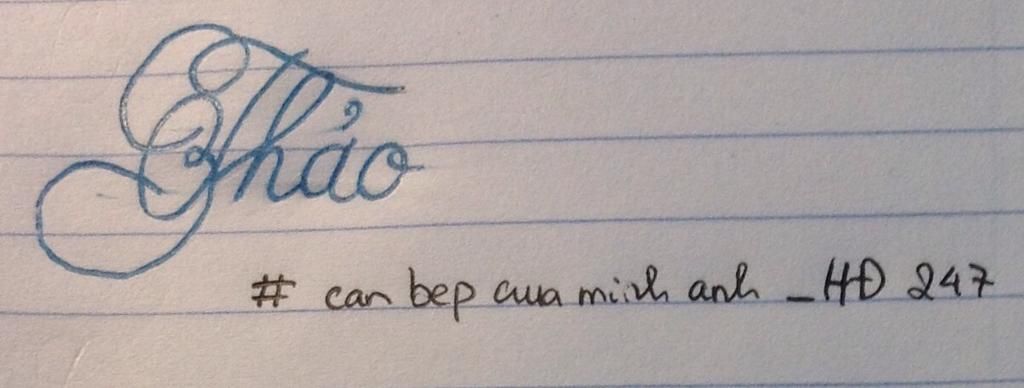 Thảo
# can bep cua minh anh _HĐ 247